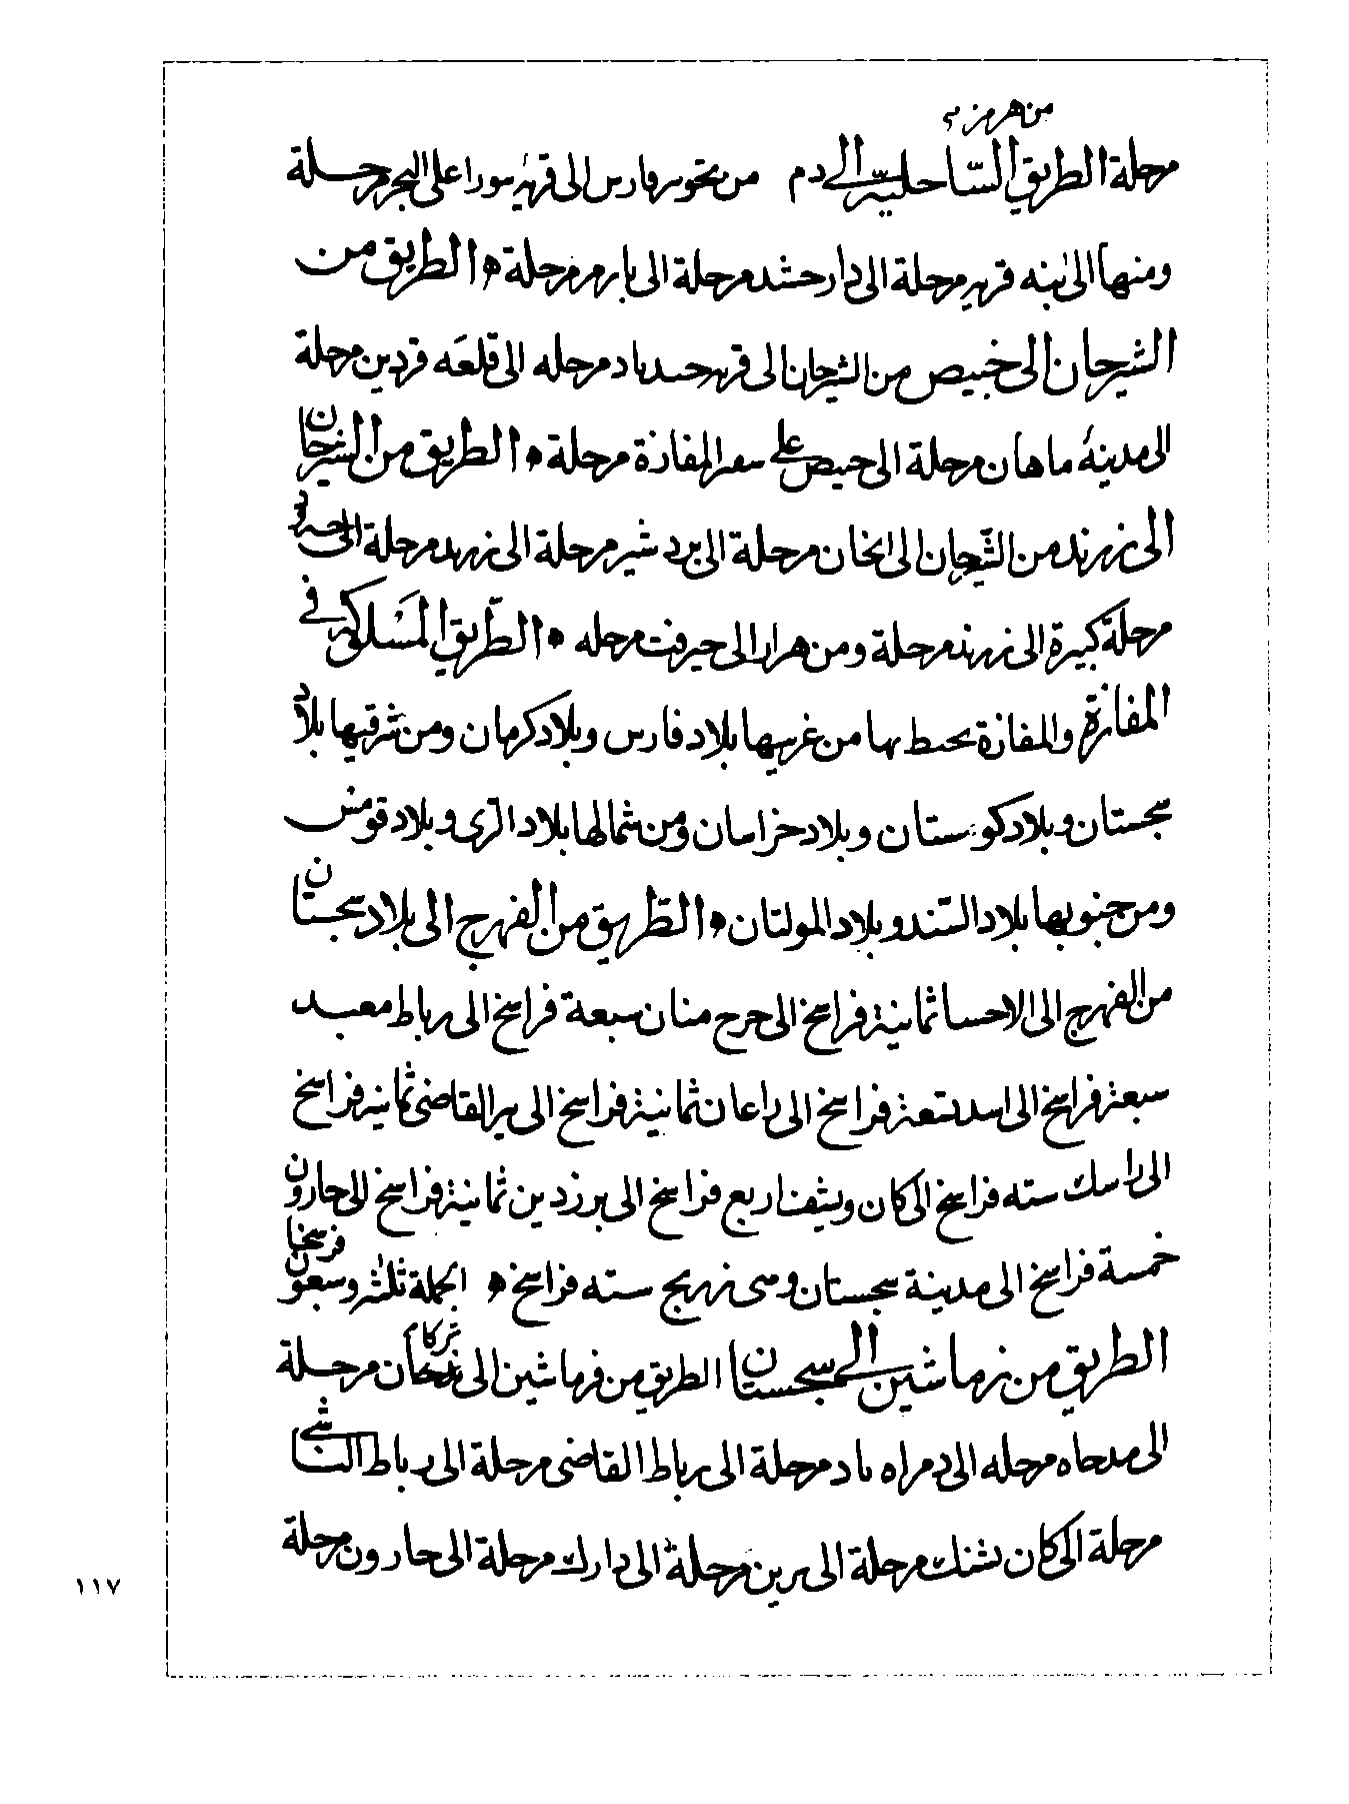 من هرمز
مرحلة الطريق الساحلية الى دم من نحو سر فارس الى قرية سورا على البحر مرحلة
ومنها الى ىىنه قرية مرحلة الى دارحشد مرحلة الى بارمر مرحلة ۞ الطريق من
الشيرجان الى خبيص من الشيرجان الى قرية مرحله الى قلعه قردين مرحلة
الى مدينة ماهان مرحلة الى حبيص على سفير المفازة مرحلة ۞ الطريق من الشيرجان
الى زرند من الشيرجان الى انخان مرحلة الى بردشير مرحلة الى زرند مرحلة الى
مرحلة كبيرة الى زرند مرحلة ومن هرار الى جيرفت مرحله ۞ الطريق المسلوكة في
المفازة والمفازة يحيط بها من غربيها بلاد فارس وبلاد كرمان ومن شرقيها بلاد
سجستان وبلاد كوستان وبلاد خراسان ومن شمالها بلاد الرى وبلاد قومس
ومن جنوبها بلاد السند وبلاد المولتان ۞ الطريق من الفهرج الى بلاد سجستان
من الفهرج الى الاحسا ثمانية فراسخ الى حرح منان سبعة فراسخ الى رباط معبد
سبعة فراسخ الى اسد تسعة فراسخ الى راعان ثمانية فراسخ الى بير القاضى ثمانية فراسخ
الى راسك سته فراسخ الى كان وبيشفنا ربع فراسخ الى برزدين ثمانية فراسخ الى حارون
خمسة فراسخ الى مدينة سجستان وسمى زرنج سته فراسخ ۞ الجملة ثلثة وسبعون فرسخا
الطريق من نرماشين الى سجستان الطريق من فرماشين الى مرحلة
الى مرحله الى دمراه باد مرحلة الى رباط القاضى مرحلة الى رباط الناشى
مرحلة الى كان بشنك مرحلة الى برين مرحلة الى دارك مرحلة الى حارون مرحلة
١١٧